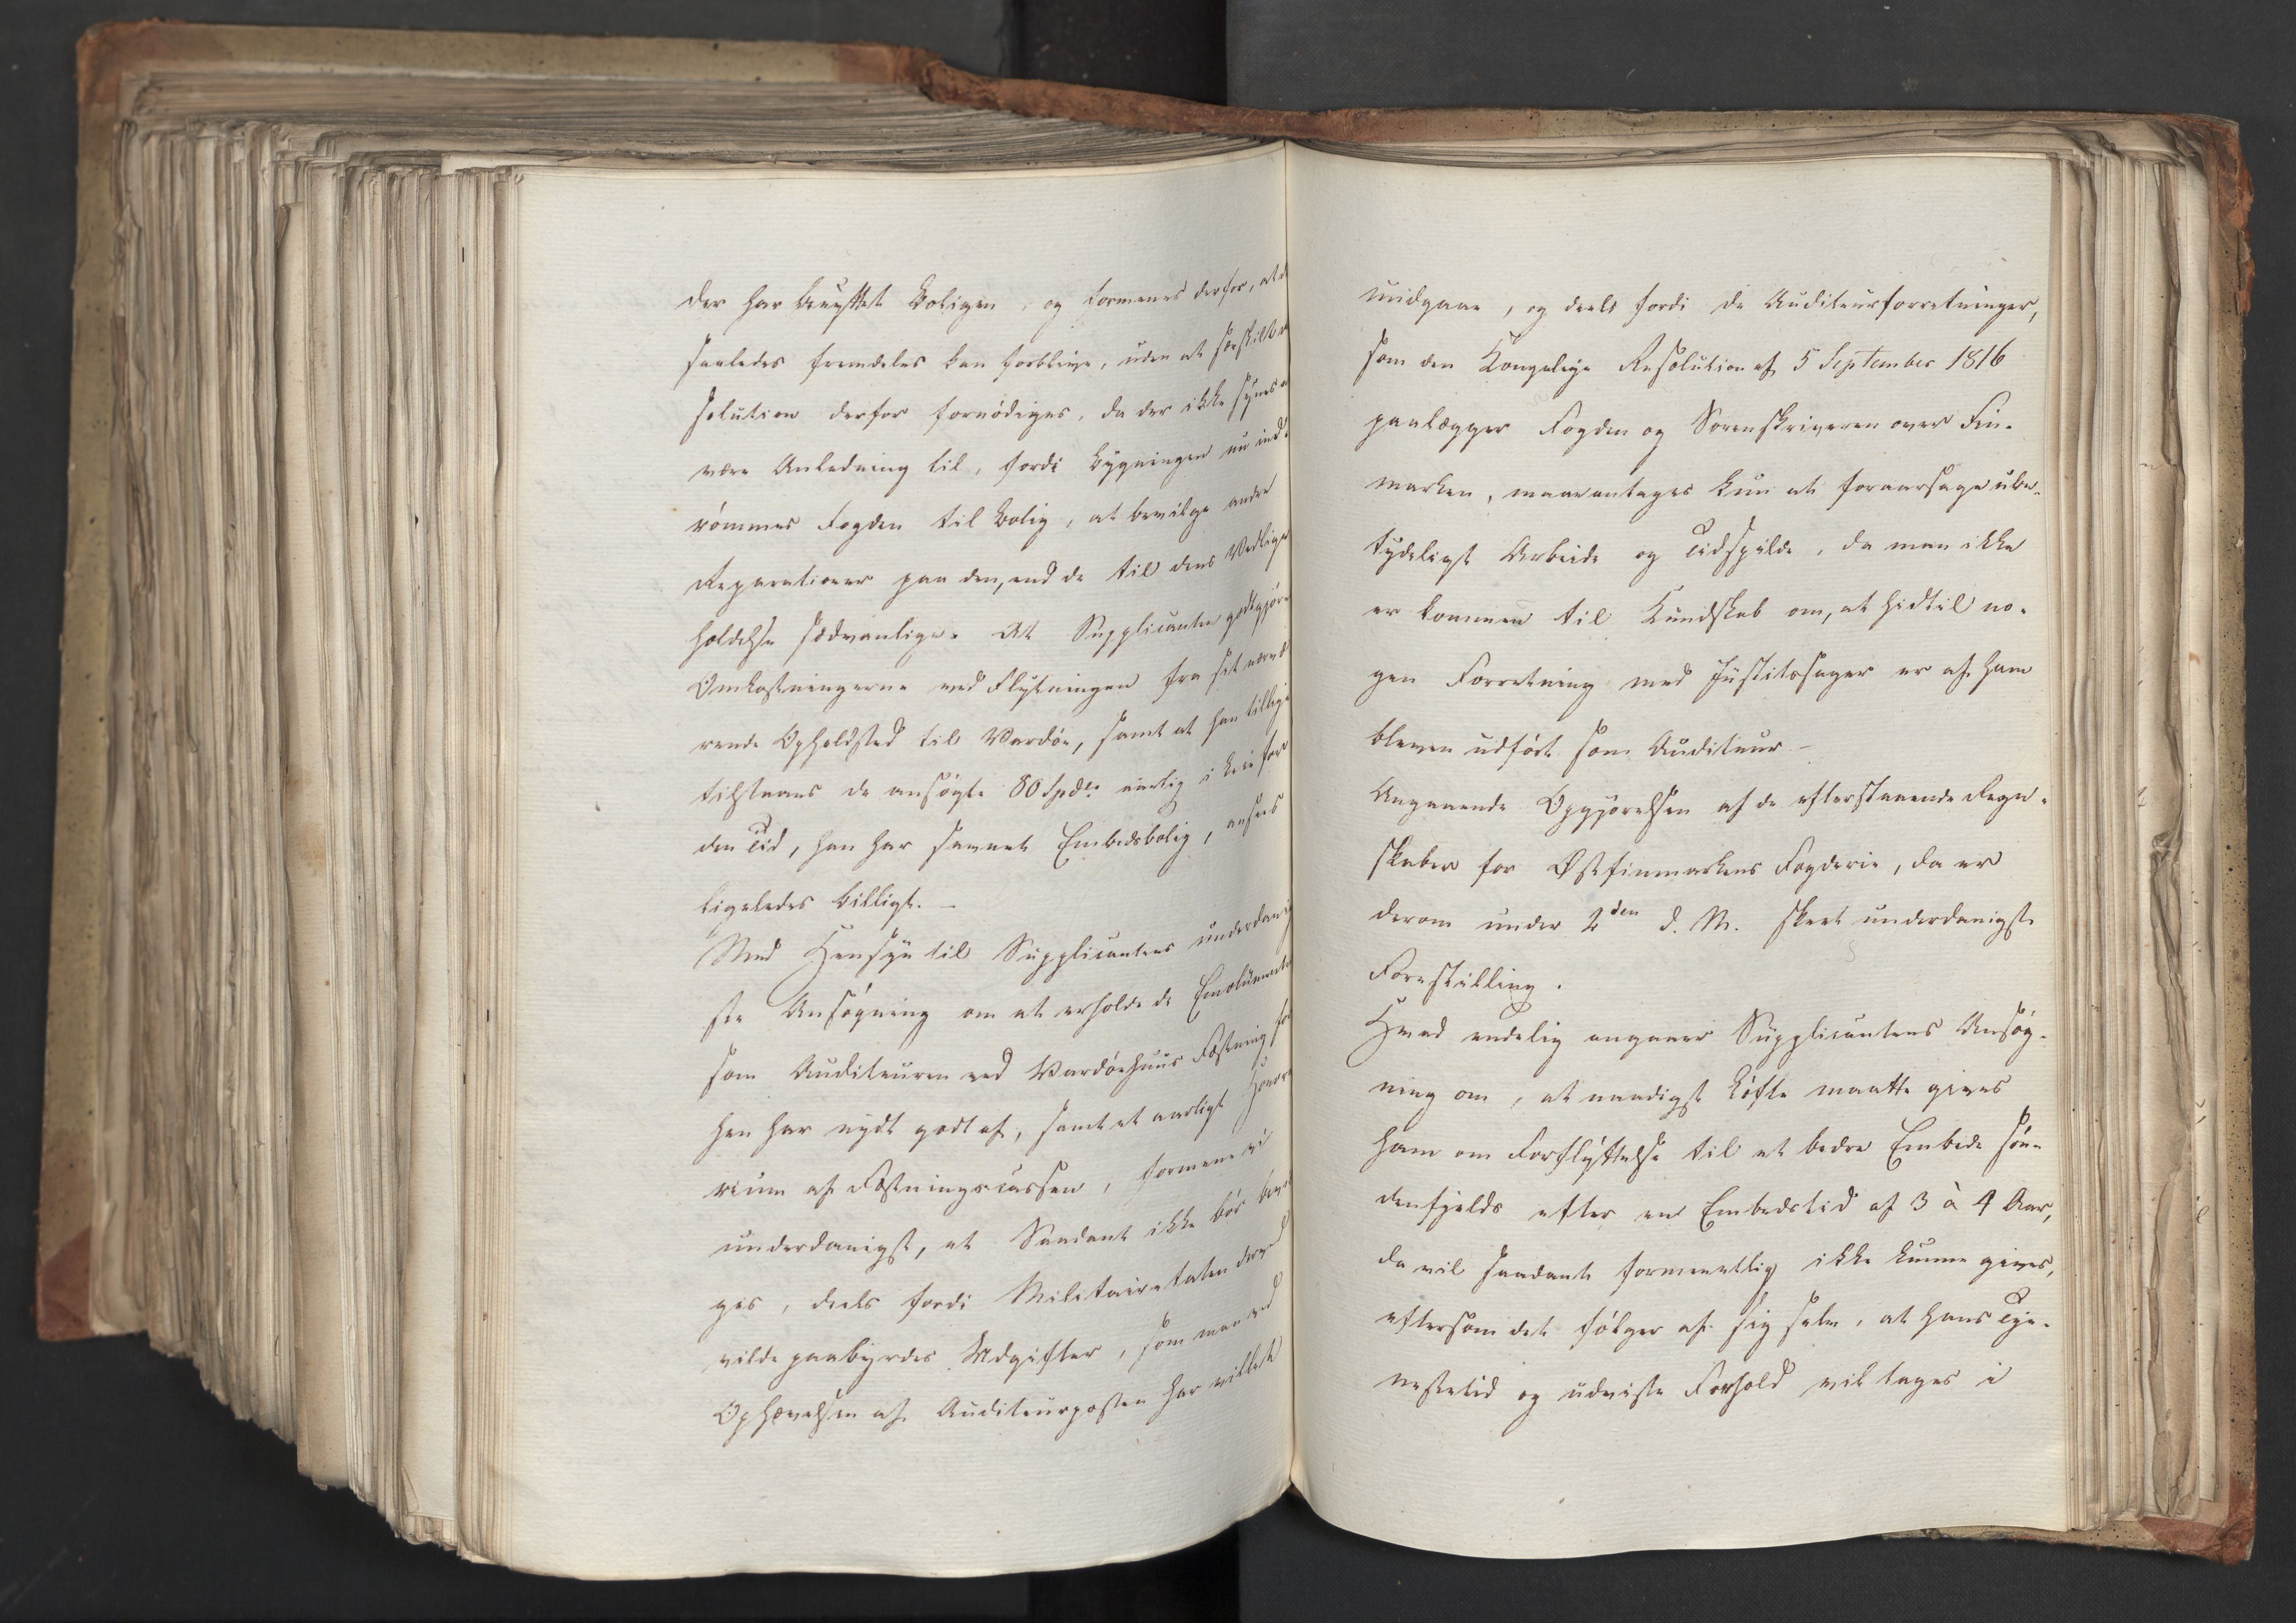 der har benyttet Boligen, og formenes derfor, at d
saaledes fremdeles kan forblive, uden at særskilt R
solution derfor fornødiges, da der ikke synes a
være Anledning til, fordi Bygningen nu ind-
rømmes Fogden til Bolig, at bevilge andre
Reparationer paa den, end de til dens Vedlige
holdelse sædvanlige. At Supplicanten godtgjøre
Omkostningerne ved Flytningen fra sit nærvæ
rende Opholdsted til Vardöe, samt at han tillige
tilstaaes de ansøgte 80 Spdlr aarlig i Leie for
den Tid, han har savnet Embedsbolig, ansees
ligeledes billigt. –
Med Hensyn til Supplicantens underdanig
ste Ansøgning om at erholde de Emolumente
som Auditeuren ved Vardöehuus Fæstning før
hen har nydt godt af, samt et aarligt Honora
rium af Fæstningscassen, formene vi
underdanigst, at Saadant ikke bør bevil
ges, deels fordi Militairetaten derved
vilde paabyrdes Udgifter, som man ved
Ophævelsen af Auditeurposten har villet
undgaae, og deels fordi de Auditeurforretninger,
som den Kongelige Resolution af 5 September 1816
paalægger Fogden og Sorenskriveren over Fin-
marken, maa antages kun at foraarsage ube-
tydeligt Arbeide og Tidspilde, da man ikke
er kommen til Kundskab om, at hidtil no-
gen Forretning med Justitssager er af ham
bleven udført som Auditeur –
Angaaende Opgjørelsen af de efterstaaende Regn-
skaber for Østfinmarkens Fogderie, da er
derom under 2den d. M. skeet underdanigst
Forestilling.
Hvad endelig angaaer Supplicantens Ansøg-
ning om, at naadigst Løfte maatte gives
ham om Forflyttelse til et bedre Embede søn-
denfjelds efter en Embedstid af 3 à 4 Aar,
da vil saadant formeentlig ikke kunne gives,
eftersom det følger af sig selv, at hans Tje-
nestetid og udviste Forhold vil tages i